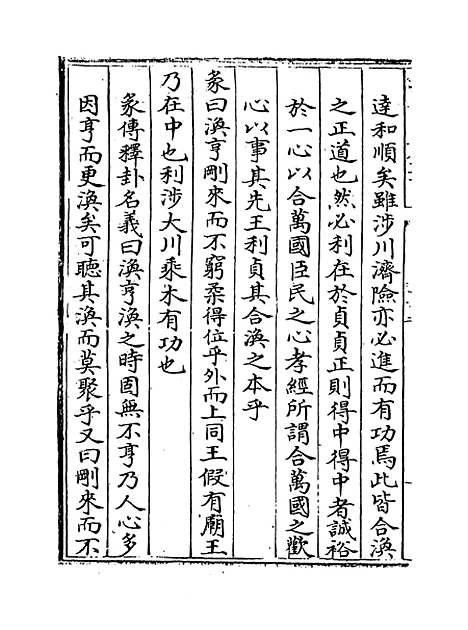 達和順矣雖涉川濟險亦必進而有功焉此皆合渙
之正道也然必利在於貞貞正則得中得中者誠裕
於一心以合萬國臣民之心孝經所謂合萬國之歡
心以事其先王利貞其合渙之本乎
彖曰渙亨剛來而不窮柔得位乎外而上同王假有廟王
乃在中也利涉大川乘木有功也
彖傳釋卦名義曰渙亨渙之時固無不亨乃人心多
因亨而更渙矣可聽其渙而莫聚乎又曰剛來而不